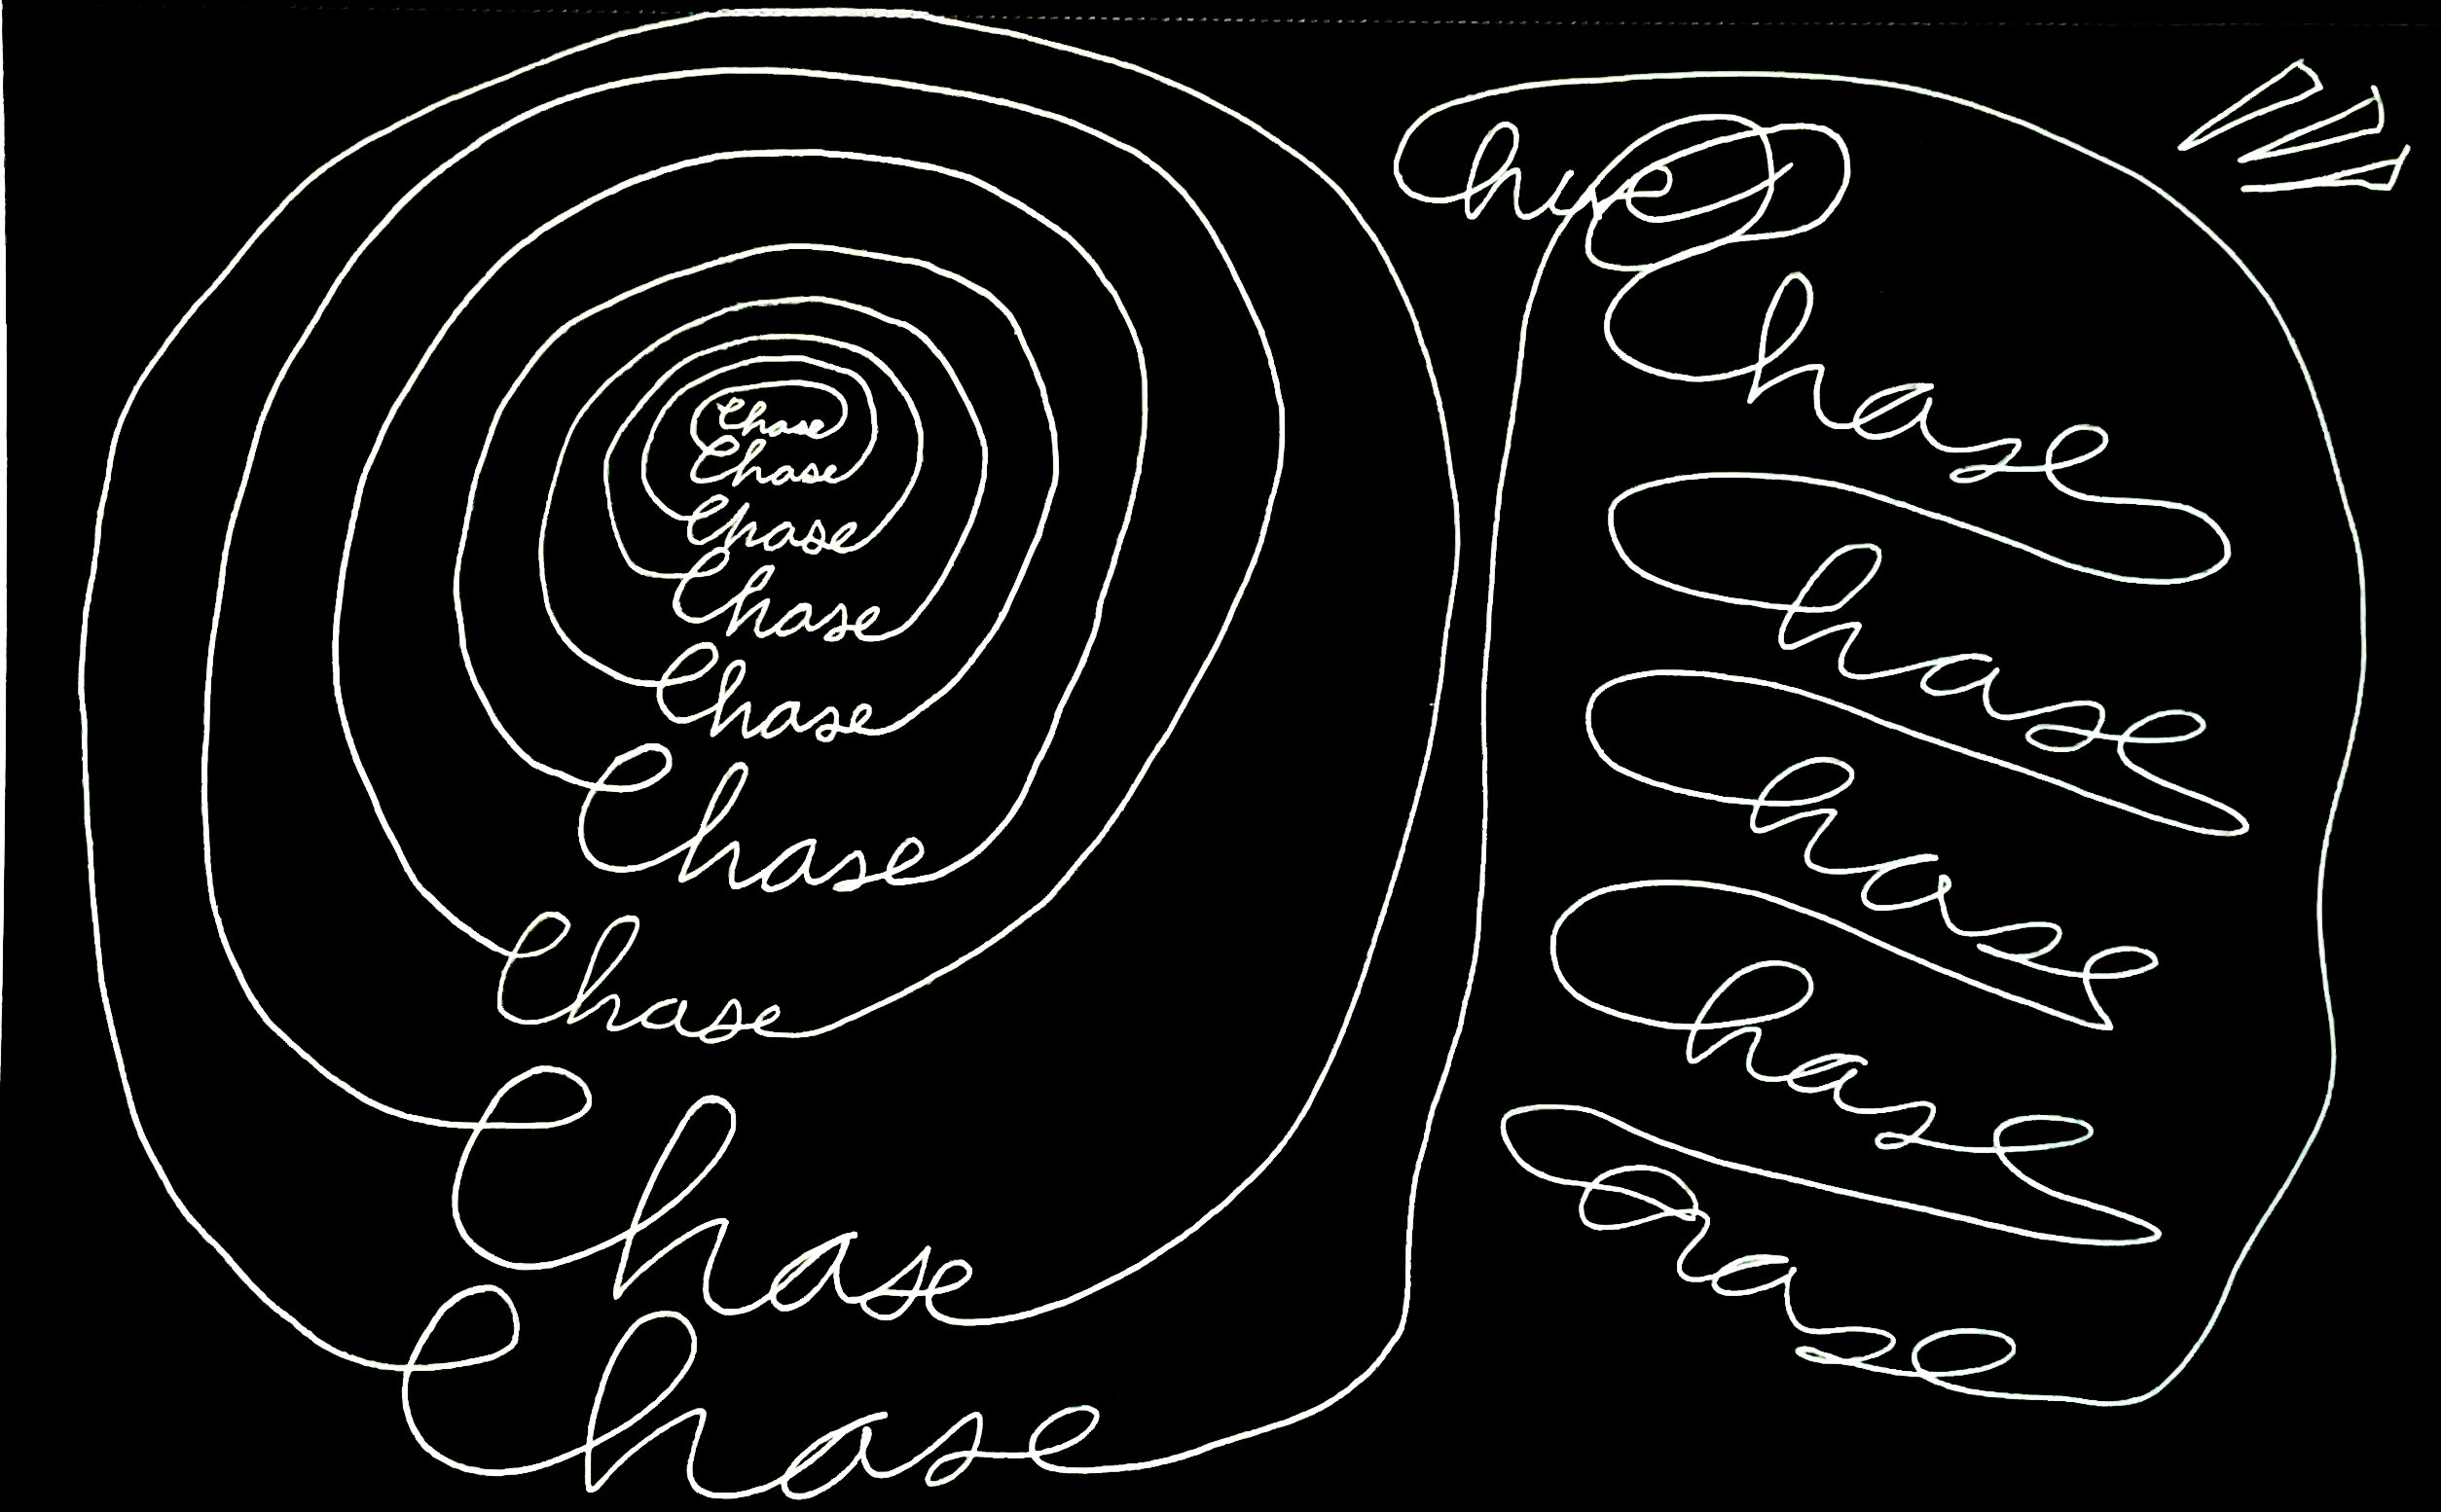 Chase
Chase
Chase
Chase
Chase
Chase
Chase
Chase
Chase
Chase
Chase
Chase
Chase